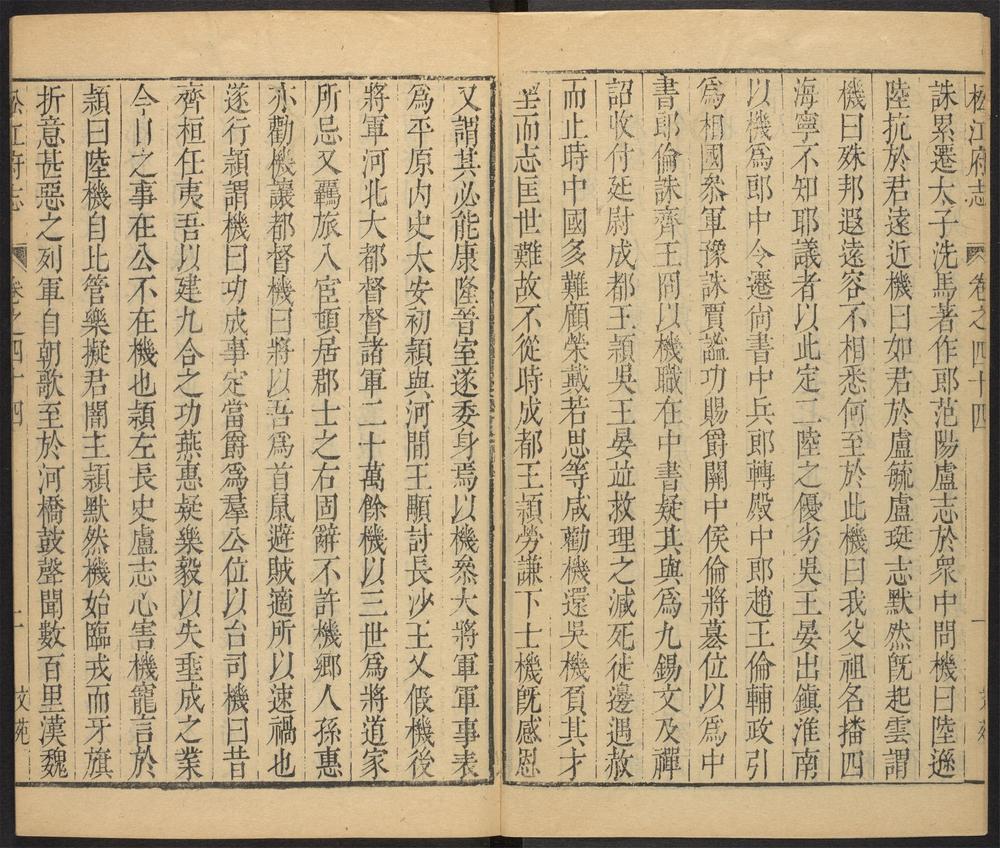 松江府志 卷之四十四 一
誅累遷太子洗馬著作郎范陽盧志於衆中問機曰陸遜
陸抗於君遠近機曰如君於盧毓盧珽志默然旣起雲謂
機曰殊邦遐遠容不相悉何至於此機曰我父祖名播四
海寧不知耶議者以此定二陸之優劣吳王晏出鎮淮南
以機爲郎中令遷尙書中兵郎轉殿中郎趙王倫輔政引
爲相國叅軍豫誅賈謐功賜爵關中侯倫將簒位以爲中
書郎倫誅齊王冏以機職在中書疑其與爲九錫文及禪
詔收付廷尉成都王頴吳王晏竝救理之減死徙邊遇赦
而止時中國多難顧榮戴若思等咸勸機還吳機負其才
望而志匡世難故不從時成都王頴勞謙下士機旣感恩
又謂其必能康隆晉室遂委身焉以機叅大將軍軍事表
爲平原內史太安初頴與河間王顒討長沙王乂假機後
將軍河北大都督督諸軍二十萬餘機以三世爲將道家
所忌又羈旅入宦頓居郡士之右固辭不許機鄉人孫惠
亦勸機讓都督機曰將以吾爲首鼠避賊適所以速禍也
遂行頴謂機曰功成事定當爵爲羣公位以台司機曰昔
齊桓任夷吾以建九合之功燕惠疑樂毅以失垂成之業
今日之事在公不在機也頴左長史盧志心害機寵言於
頴曰陸機自比管樂擬君闇主頴默然機始臨戎而牙旗
折意甚惡之列軍自朝歌至於河橋鼓聲聞數百里漢魏
松江府志 卷之四十四 二 文苑